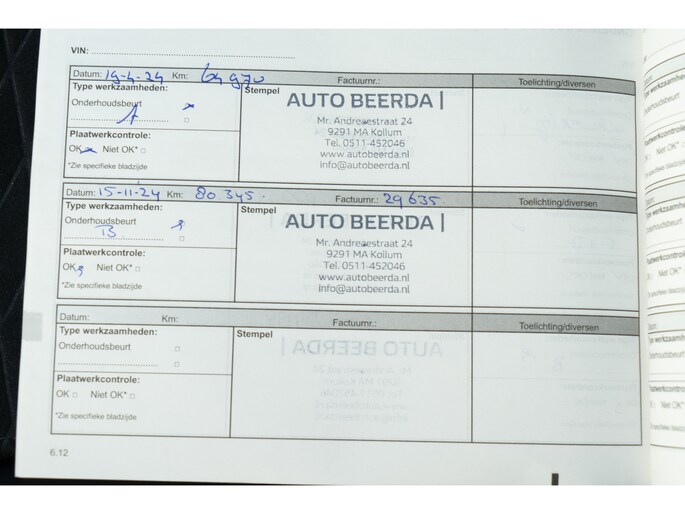 VIN:
Datum: 19-4-24 Km: 64970 Factuurnr.: Toelichting/diversen
Type werkzaamheden:
Onderhoudsbeurt
A
Plaatwerkcontrole:
OK Niet OK* □
*Zie specifieke bladzijde
Stempel
AUTO BEERDA |
Mr. Andreaestraat 24
9291 MA Kollum
Tel. 0511-452046
www.autobeerda.nl
info@autobeerda.nl
Datum: 15-11-24 Km: 80 345. Factuurnr.: 29635 Toelichting/diversen
Type werkzaamheden:
Onderhoudsbeurt
B
Plaatwerkcontrole:
OK Niet OK* □
*Zie specifieke bladzijde
Stempel
AUTO BEERDA |
Mr. Andreaestraat 24
9291 MA Kollum
Tel. 0511-452046
www.autobeerda.nl
info@autobeerda.nl
Datum: Km: Factuurnr.: Toelichting/diversen
Type werkzaamheden:
Onderhoudsbeurt □
□
Plaatwerkcontrole:
OK □ Niet OK* □
*Zie specifieke bladzijde
Stempel
6.12